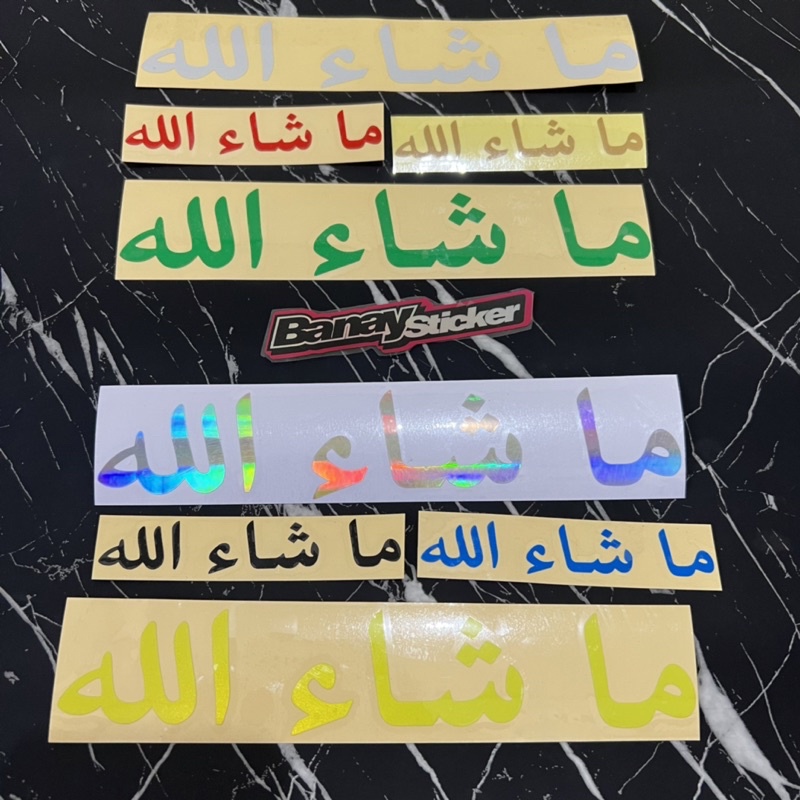 ما شاء الله
ما شاء الله
ما شاء الله
ما شاء الله
Banay Sticker
ما شاء الله
ما شاء الله
ما شاء الله
ما شاء الله